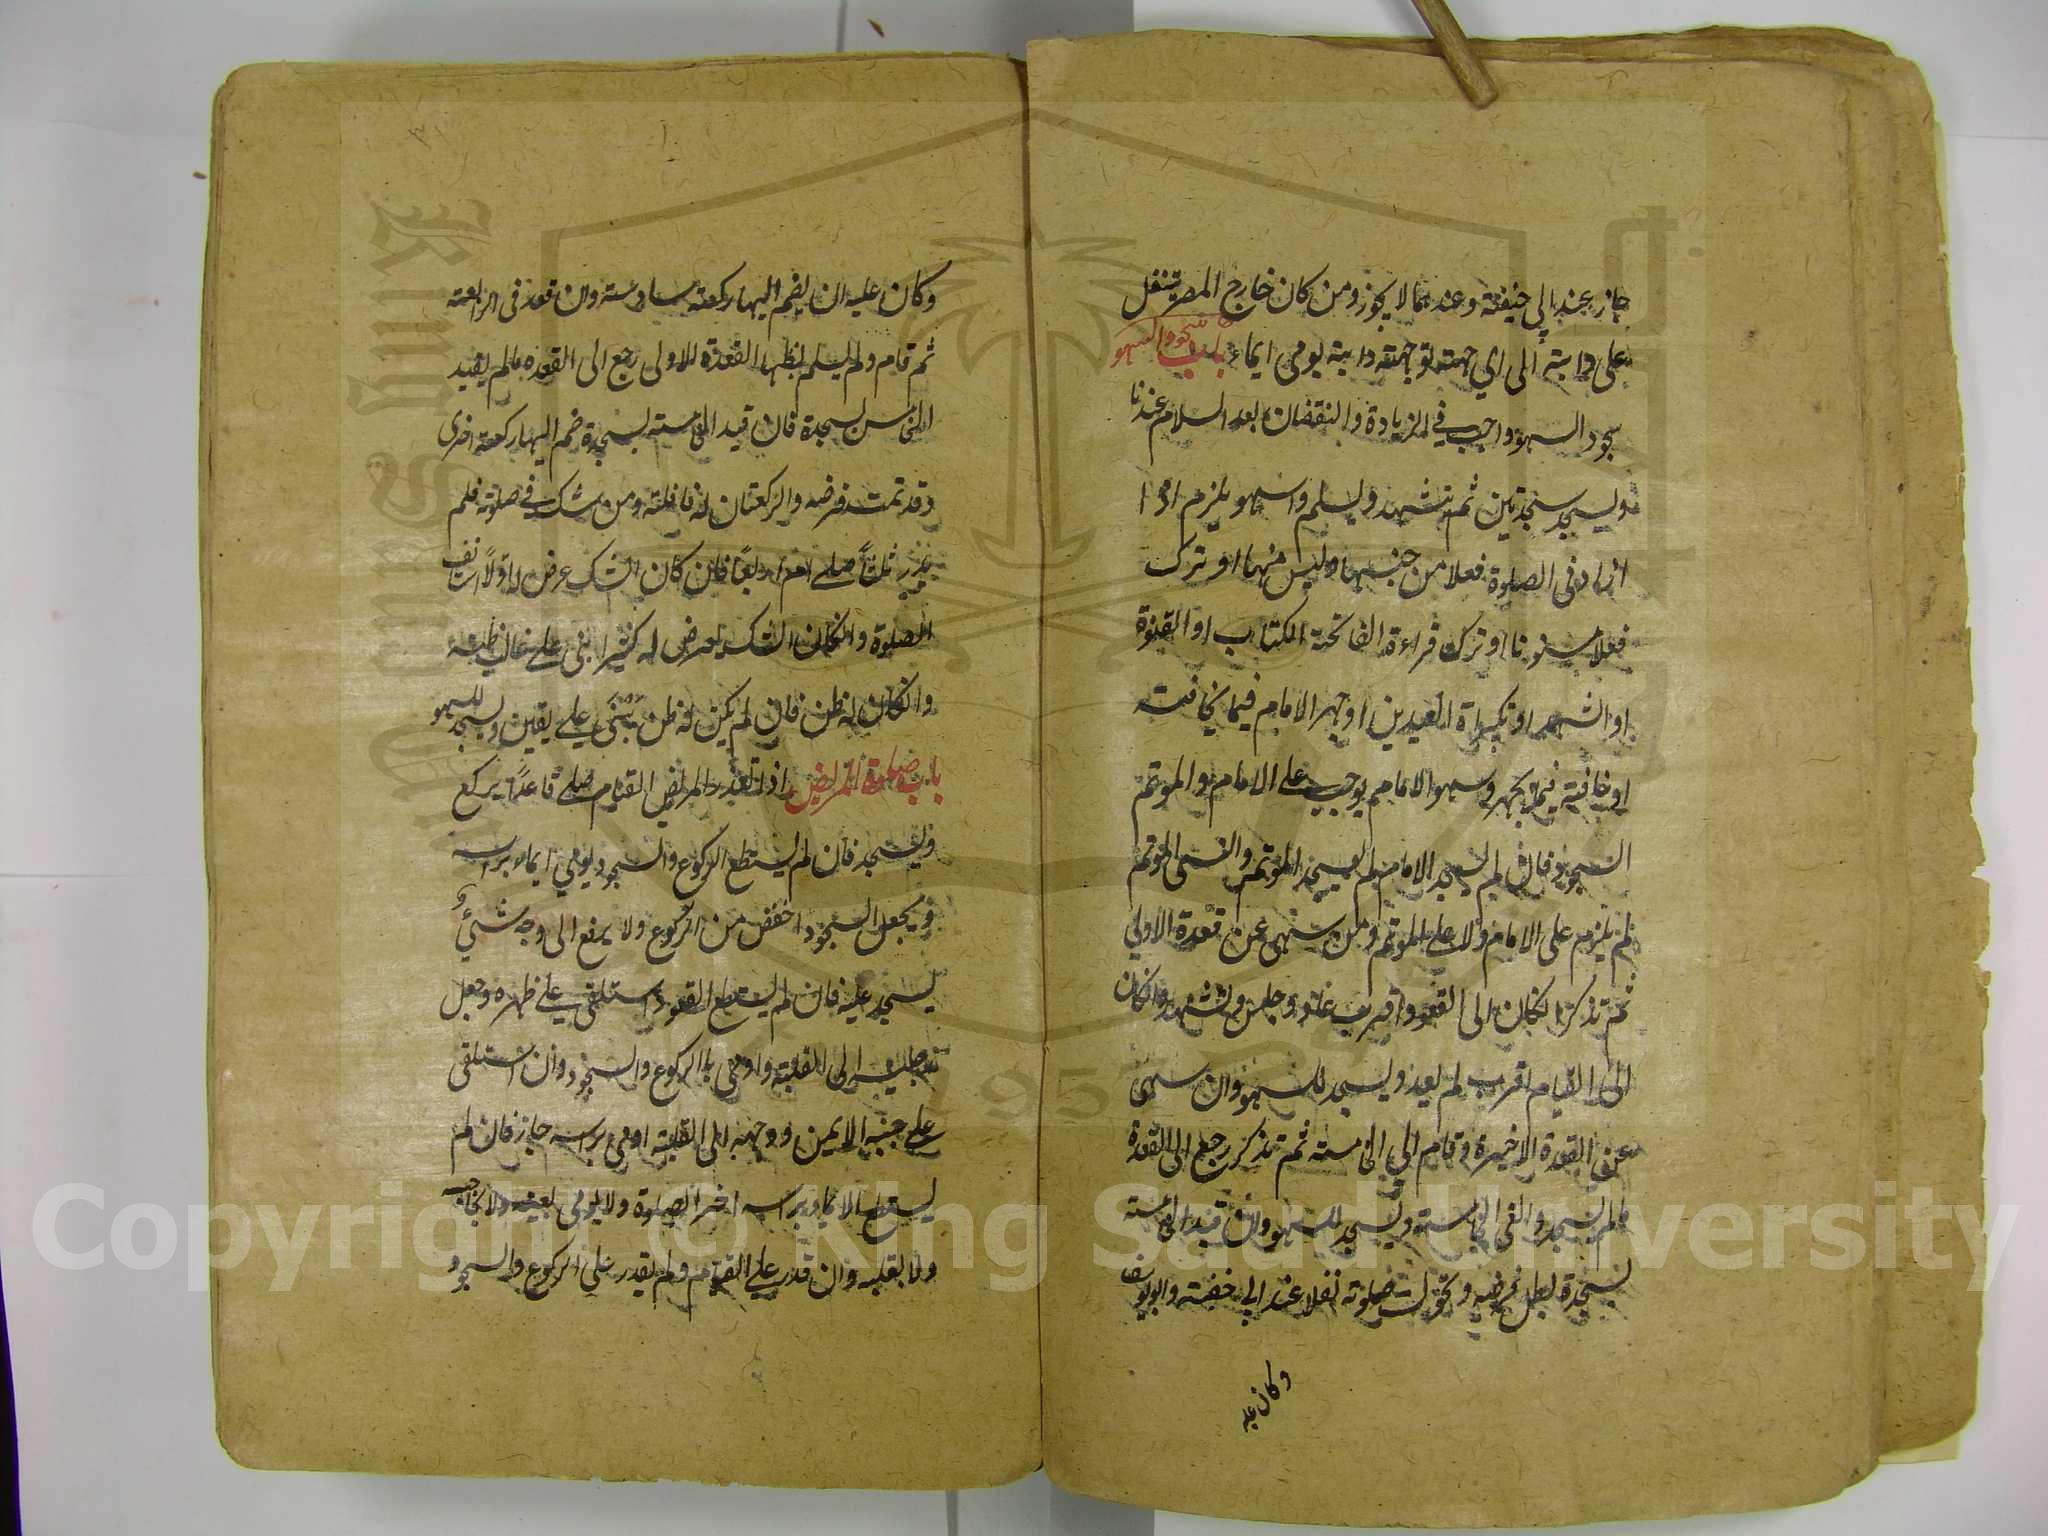 جاز عند ابي حنيفة وعندهما لا يجوز ومن كان خارج المصر يتنفل
على دابته الى اي جهته توجهته دابته يومي ايماء باب سجود السهو
سجود السهو واجب في الزيادة والنقصان بعد السلام عندنا
ويسجد سجدتين ثم يتشهد ويسلم والسهو يلزم اذا
زاد في الصلوة فعلا من جنسها وليس منها او ترك
فعلا مسنونا او ترك قراءة الفاتحة الكتاب او القنوة
او التشهد او تكبيراة العيدين او جهر الامام فيما يخافت
او خافته فيما يجهر وسهو الامام يوجب على الامام والموتم
السجود فان لم يسجد الامام لم يسجد الموتم وان سهى الموتم
لم يلزم على الامام ولا على الموتم ومن سهى عن قعدة الاولى
ثم تذكر انكان الى القعود اقرب عاد وجلس وتشهد وانكان
الى القيام اقرب لم يعد ويسجد للسهو وان سهى
عن القعدة الاخيرة وقام الى الخامسته ثم تذكر رجع الى القعدة
ما لم يسجد والقى الخامسته ويسجد للسهو وان قيد الخامسته
بسجدة بطل فرضه وتحولت صلوته نفلا عند ابي حنفته وابويوسف
وكان عليه
وكان عليه ان يضم اليها ركعته سادسته وان قعد في الرابعته
ثم قام ولم يسلم يظنها القعدة الاولى رجع الى القعدة مالم يقيد
الخامس بسجدة فان قيد الخامسته بسجدة ضم اليها ركعته اخرى
وقد تمت فرضه والركعتان له نافلته ومن شك في صلوته فلم
يدر ثلثا صلى ام اربعا فان كان الشك عرض له اولا استانف
الصلوة وانكان الشك يعرض له كثيرا بنى على غالب ظنه
وانكان له ظن فان لم يكن له ظن يبنى على يقين ويسجد للسهو
باب صلوة المريض اذا تعذر المريض القيام صلى قاعدا يركع
ويسجد فان لم يستطع الركوع والسجود يومي ايماء براسه
ويجعل السجود اخفض من الركوع ولا يرفع الى وجه شئي
يسجد عليه فان لم يستطع القعود استلقى على ظهره وجعل
رجليه الى القبلته واومى باالركوع والسجود وان استلقى
على جنبه الايمن ووجهه الى القبلته اومى براسه جاز فان لم
يستطع الايماء براسه اخر الصلوة ولا يومى بعينه ولا بحاجبه
ولا بقلبه وان قدر على القيام ولم يقدر على الركوع والسجود
Copyright © King Saud University